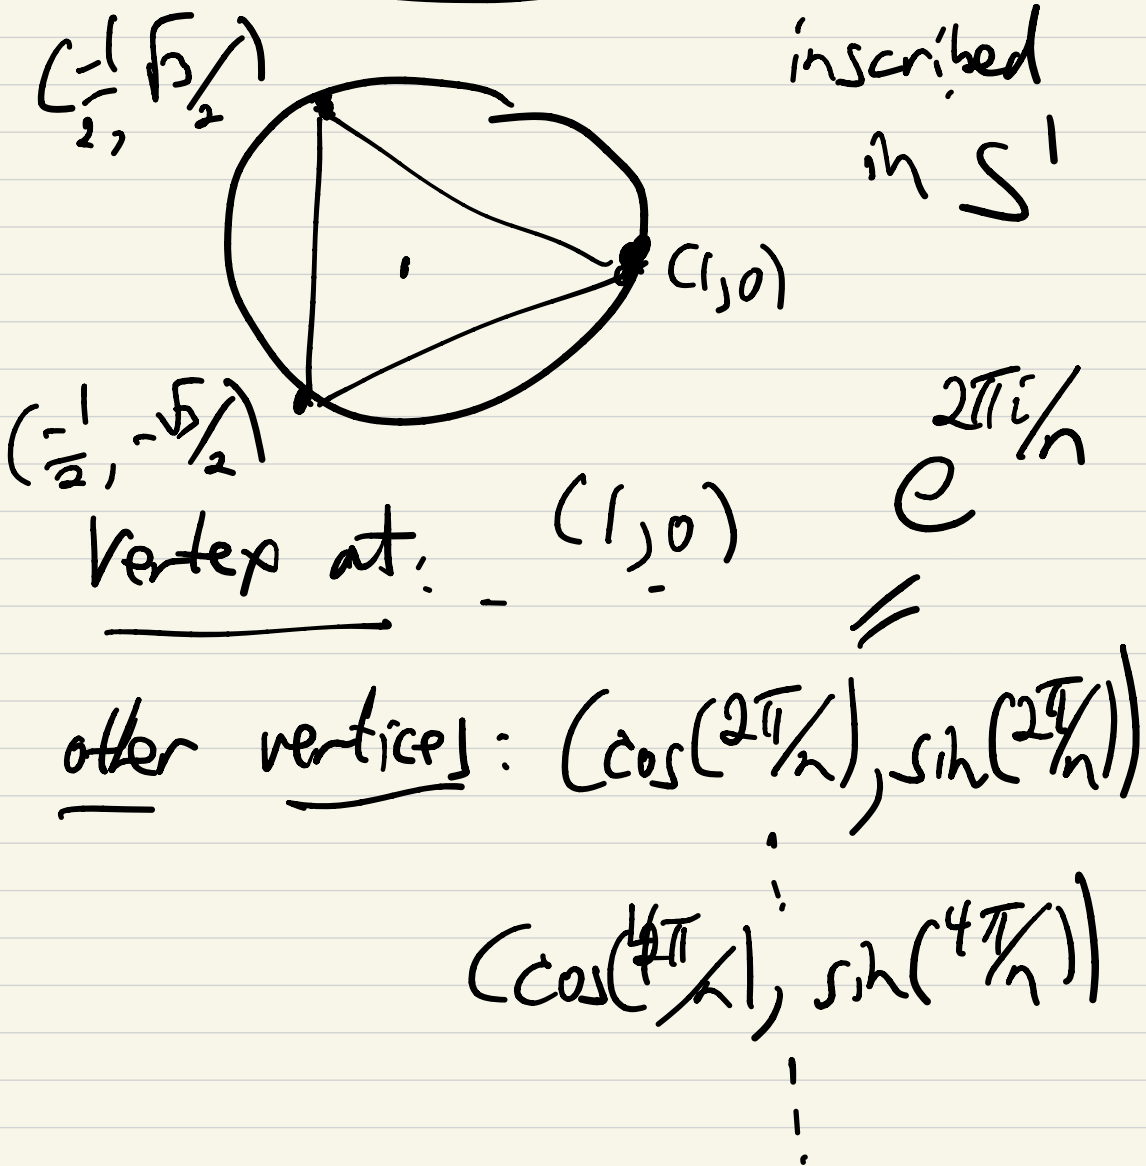 (-1/2, √3/2)
inscribed
in S¹
(1,0)
(-1/2, -√3/2)
e^{2πi/n}
Vertex at: (1,0)
=
other vertices: (cos(2π/n), sin(2π/n))
⋮
(cos(4π/n), sin(4π/n))
⋮